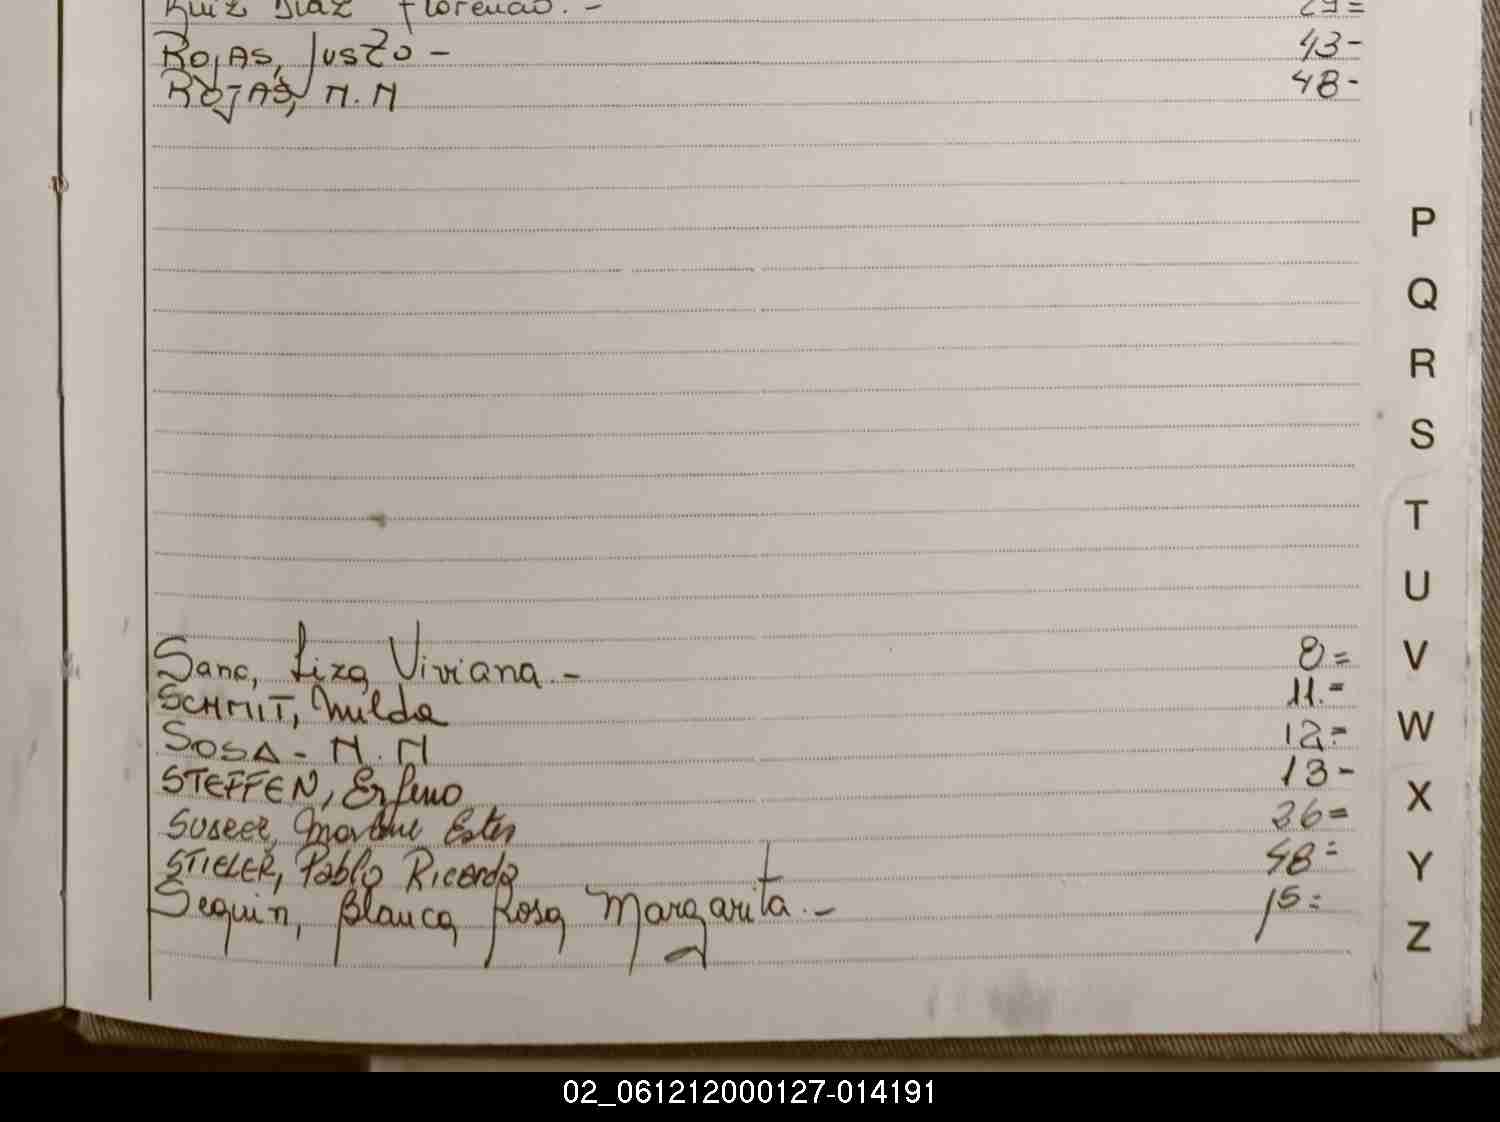 Ruiz Diaz Florencio. - 29=
ROJAS, Justo - 43-
ROJAS, N.N 48-
P
Q
R
S
T
U
V
W
X
Y
Z
Sanc, Liza Viviana. - 8=
SCHMIT, Nilda 11.=
SOSA - N.N 12=
STEFFEN, 13-
Ester 36=
STIELER, Pablo Ricardo 48=
Seguin, Blanca Rosa Margarita. - 15=
02_061212000127-014191